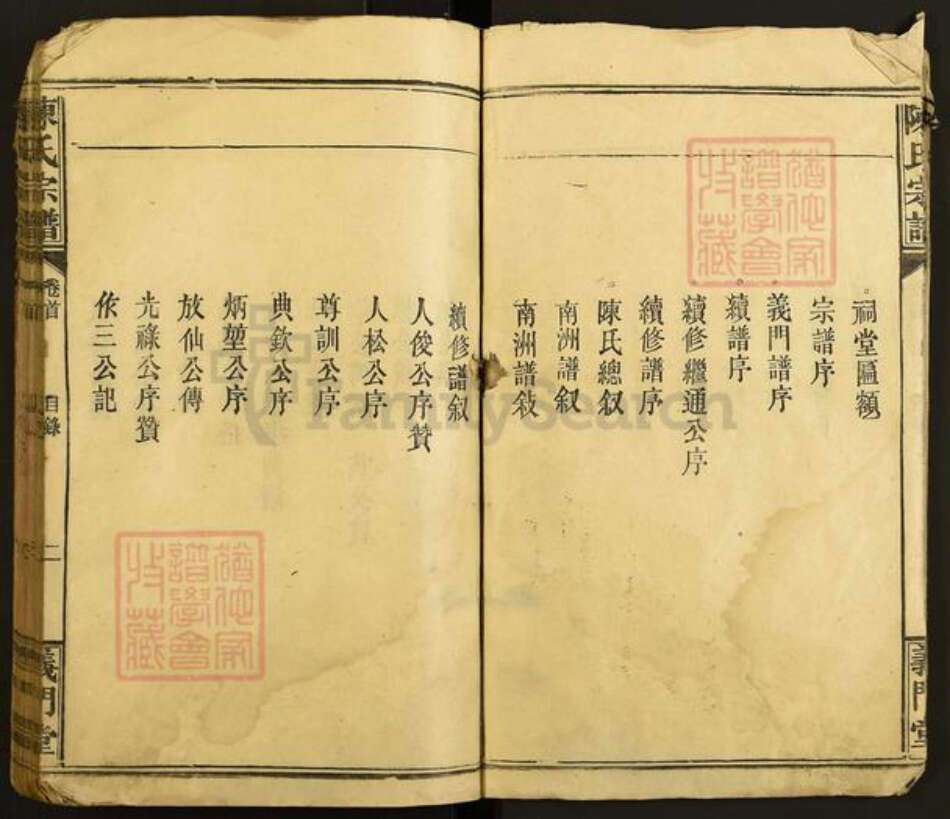 陳氏宗譜
義門堂
祠堂匾額
宗譜序
義門譜序
續譜序
續修繼通公序
續修譜序
陳氏總叙
南洲譜叙
南洲譜敍
續修譜叙
人俊公序贊
人松公序
尊訓公序
典欽公序
炳堃公序
放仙公傳
光祿公序贊
佐三公記
陳氏宗譜
卷首
目錄
二
義門堂
FamilySearch